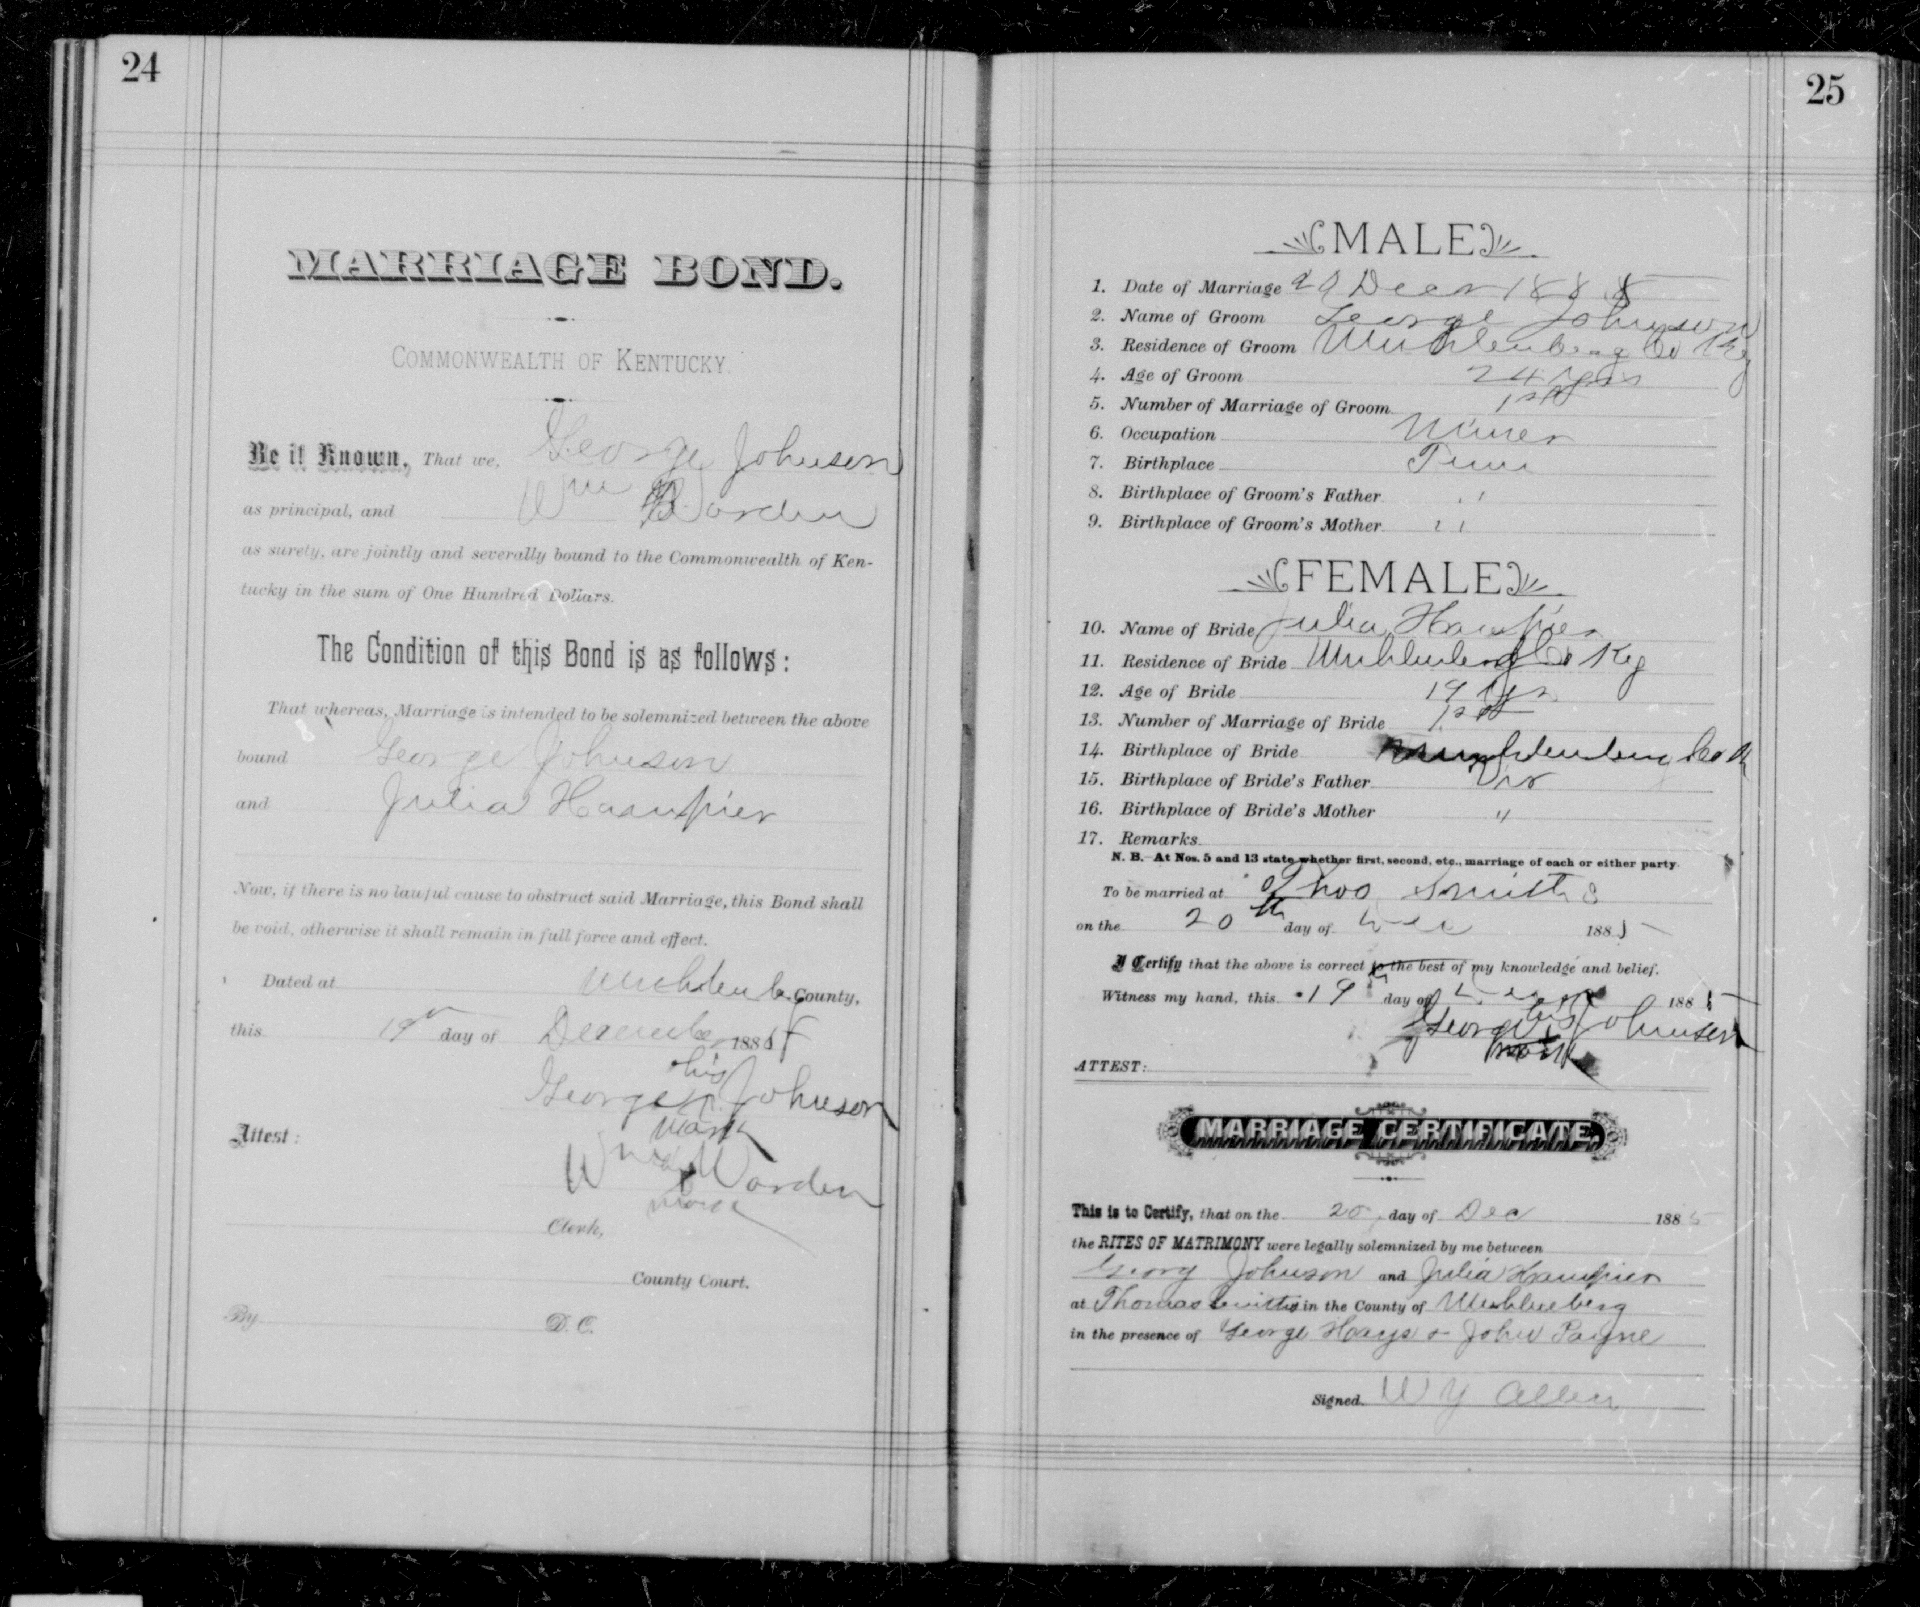 24
MARRIAGE BOND.
COMMONWEALTH OF KENTUCKY.
Be it Known, That we, George Johnson
as principal, and Wm Worden
as surety, are jointly and severally bound to the Commonwealth of Ken-
tucky in the sum of One Hundred Dollars.
The Condition of this Bond is as follows:
That whereas, Marriage is intended to be solemnized between the above
bound George Johnson
and Julia Hampier
Now, if there is no lawful cause to obstruct said Marriage, this Bond shall
be void, otherwise it shall remain in full force and effect.
Dated at Muhlenberg County,
this 19th day of December 1885
his
George x Johnson
mark
Attest:
Wm x Worden
mark
Clerk,
County Court.
By D. C.
25
MALE
1. Date of Marriage Decr 188
2. Name of Groom George Johnson
3. Residence of Groom Muhlenberg Co Ky
4. Age of Groom 24 yrs
5. Number of Marriage of Groom 1st
6. Occupation Miner
7. Birthplace Tenn
8. Birthplace of Groom's Father "
9. Birthplace of Groom's Mother "
FEMALE
10. Name of Bride Julia Hampier
11. Residence of Bride Muhlenberg Co Ky
12. Age of Bride 19 yrs
13. Number of Marriage of Bride 1st
14. Birthplace of Bride Muhlenberg Co
15. Birthplace of Bride's Father
16. Birthplace of Bride's Mother "
17. Remarks
N. B.—At Nos. 5 and 13 state whether first, second, etc., marriage of each or either party.
To be married at Thos Smiths
on the 20th day of Dec 1885
I Certify that the above is correct to the best of my knowledge and belief.
Witness my hand, this 19th day of 1885
his
George x Johnson
mark
ATTEST:
MARRIAGE CERTIFICATE.
This is to Certify, that on the 20 day of Dec 1885
the RITES OF MATRIMONY were legally solemnized by me between
Georg Johnson and Julia Hampier
at Thomas Smiths in the County of Muhlenberg
in the presence of George Hays & John Payne
Signed. W Y Allen